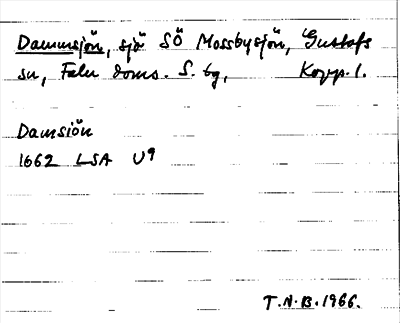 Dammsjön, sjö SÖ Mossbysjön, Gustafs
sn, Falu doms. S. tg, Kopp. l.
Damsiön
1662 LSA U9
T.N.B. 1966.